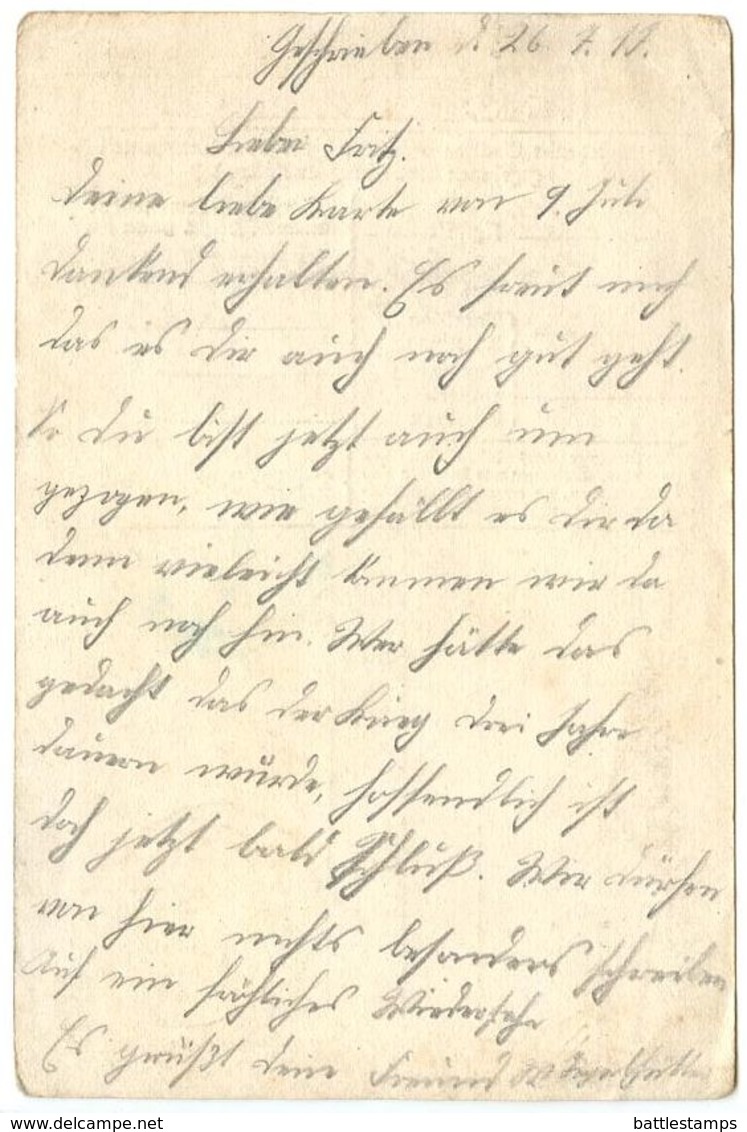 Geschrieben d. 26. 7. 17.
Lieber Fritz.
Deine liebe Karte von 9. Juli
dankend erhalten. Es freut mich
das es dir auch noch gut geht.
So du bist jetzt auch um
gezogen, wie gefällt es dir da
denn vieleicht kommen wir da
auch noch hin. Wer hätte das
gedacht das der Krieg drei Jahre
dauern würde, hoffendlich ist
doch jetzt bald Schluß. Wir dürfen
von hier nichts besonders schreiben
Auf ein fröhliches Wiedersehn
Es grüßt dein Freund
battlestamps